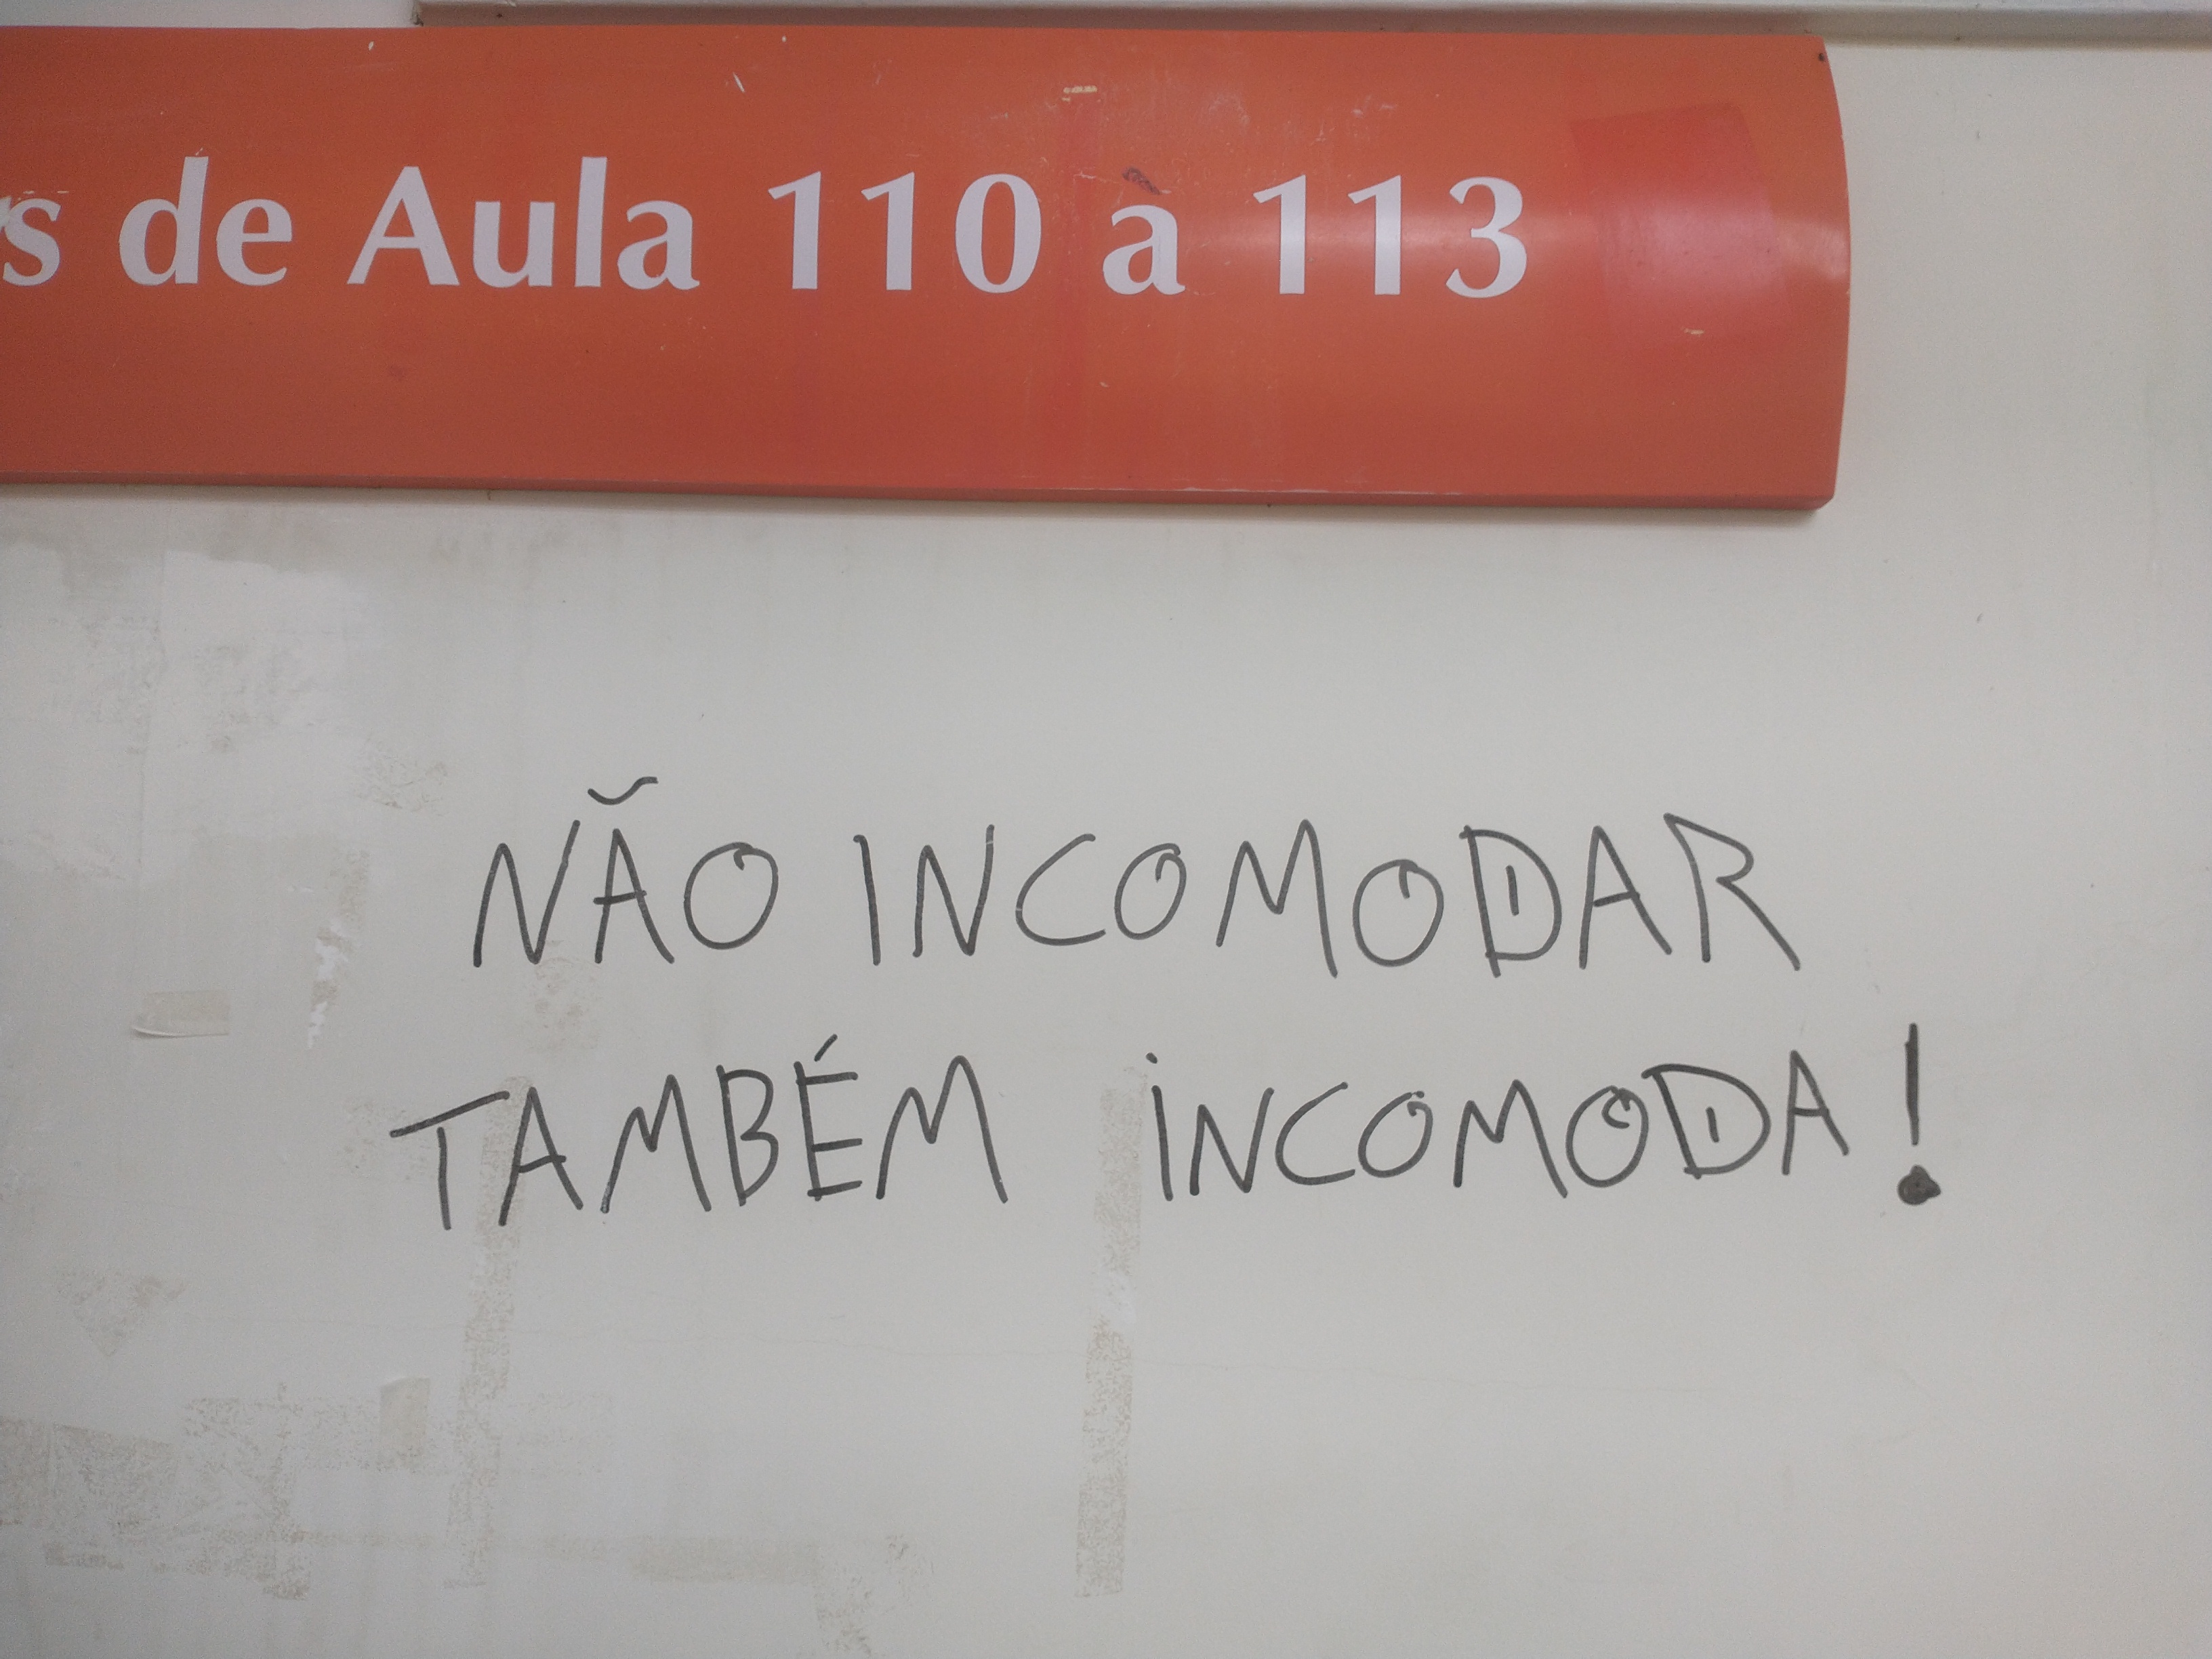 s de Aula 110 a 113
NÃO INCOMODAR
TAMBÉM INCOMODA!